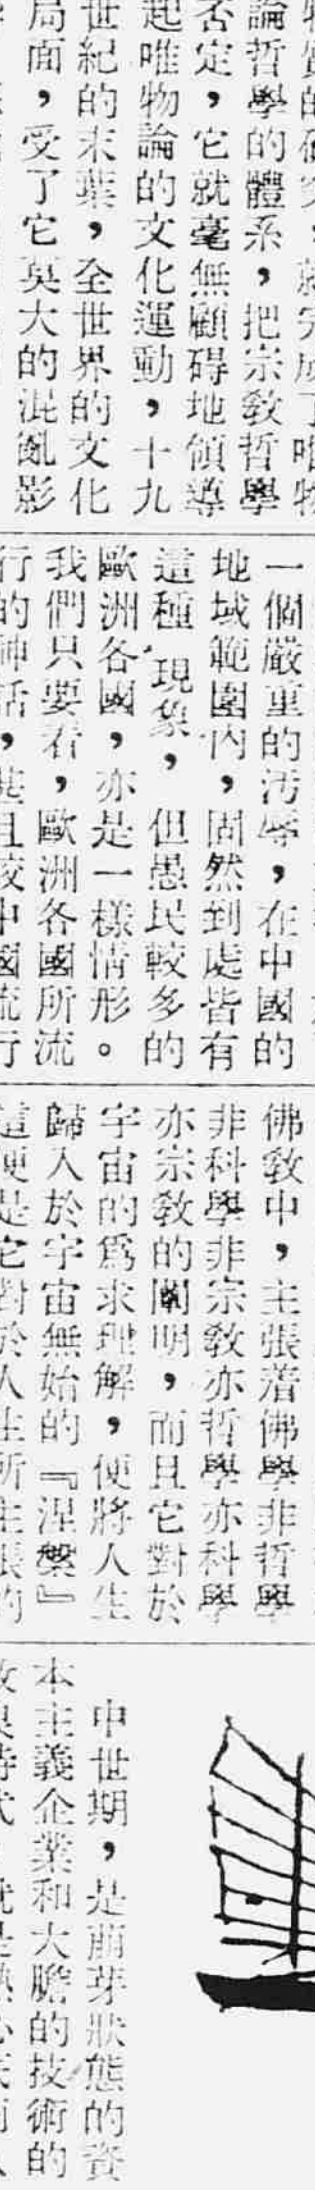 論哲學的體系，把宗教哲學
否定，它就毫無顧碍地傾導
起唯物論的文化運動，十九
世紀的末葉，全世界的文化
局面，受了它莫大的混亂影
一個嚴重的汚辱，在中國的
地域範圍內，固然到處皆有
這種現象，但愚民較多的
歐洲各國，亦是一樣情形。
我們只要看，歐洲各國所流
行的神話，甚且較中國流行
佛教中，主張着佛學非哲學
非科學非宗教亦哲學亦科學
亦宗教的闡明，而且它對於
宇宙的爲求理解，便將人生
歸入於宇宙無始的『涅槃』
這便是它對於人生所主張的
中世期，是萠芽狀態的資
本主義企業和大膽的技術的